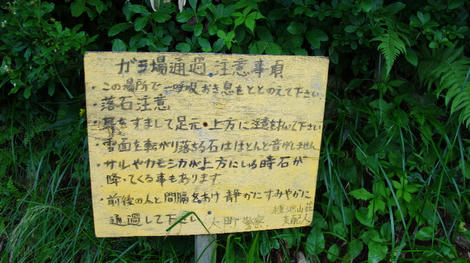 ガラ場通過 注意事項
・この場所で一呼吸おき息をととのえて下さい
・落石注意
・耳をすまして足元・上方に注意をおいて下さい
・雪面を転がり落ちる石はほとんど音がしません
・サルやカモシカが上方にいる時石が
降ってくる事もあります。
・前後の人と間隔をあけ静かにすみやかに
通過して下さい
大町警察
山荘
支配人